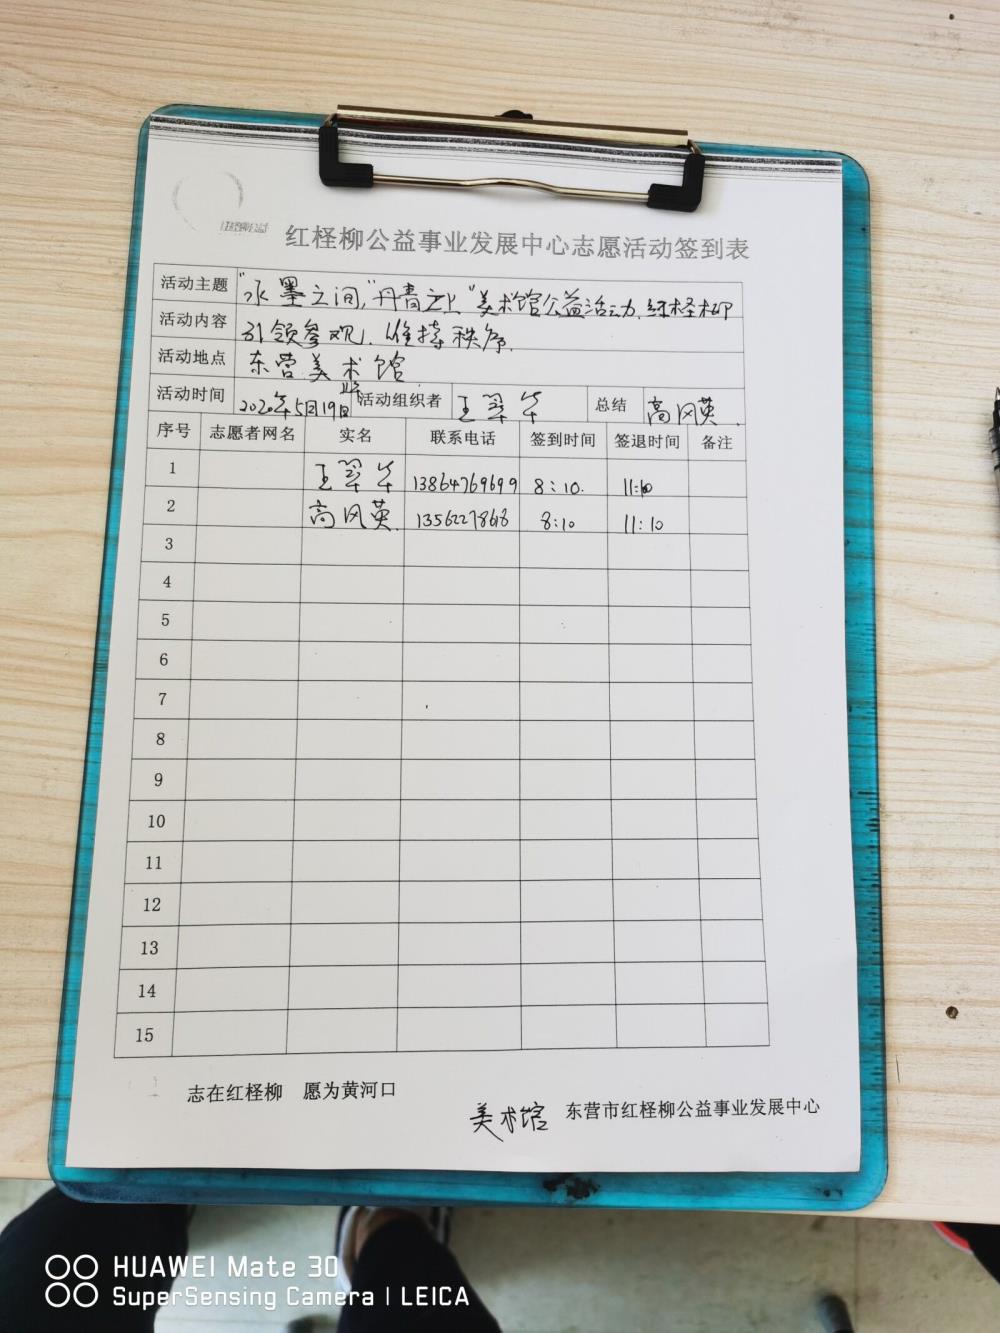 红柽柳公益
红柽柳公益事业发展中心志愿活动签到表
活动主题 "水墨之间,"丹青之上"美术馆公益活动.红柽柳
活动内容 引领参观,维持秩序.
活动地点 东营美术馆
活动时间 2020年5月19日 活动组织者 王翠华 总结 高风英.
序号 志愿者网名 实名 联系电话 签到时间 签退时间 备注
1 王翠华 13864769699 8:10. 11:10
2 高风英. 8:10 11:10
3
4
5
6
7
8
9
10
11
12
13
14
15
志在红柽柳 愿为黄河口
美术馆 东营市红柽柳公益事业发展中心
HUAWEI Mate 30
SuperSensing Camera | LEICA